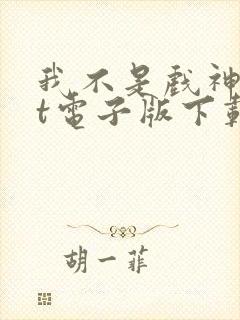 我不是戲神
t電子版下載
胡一菲